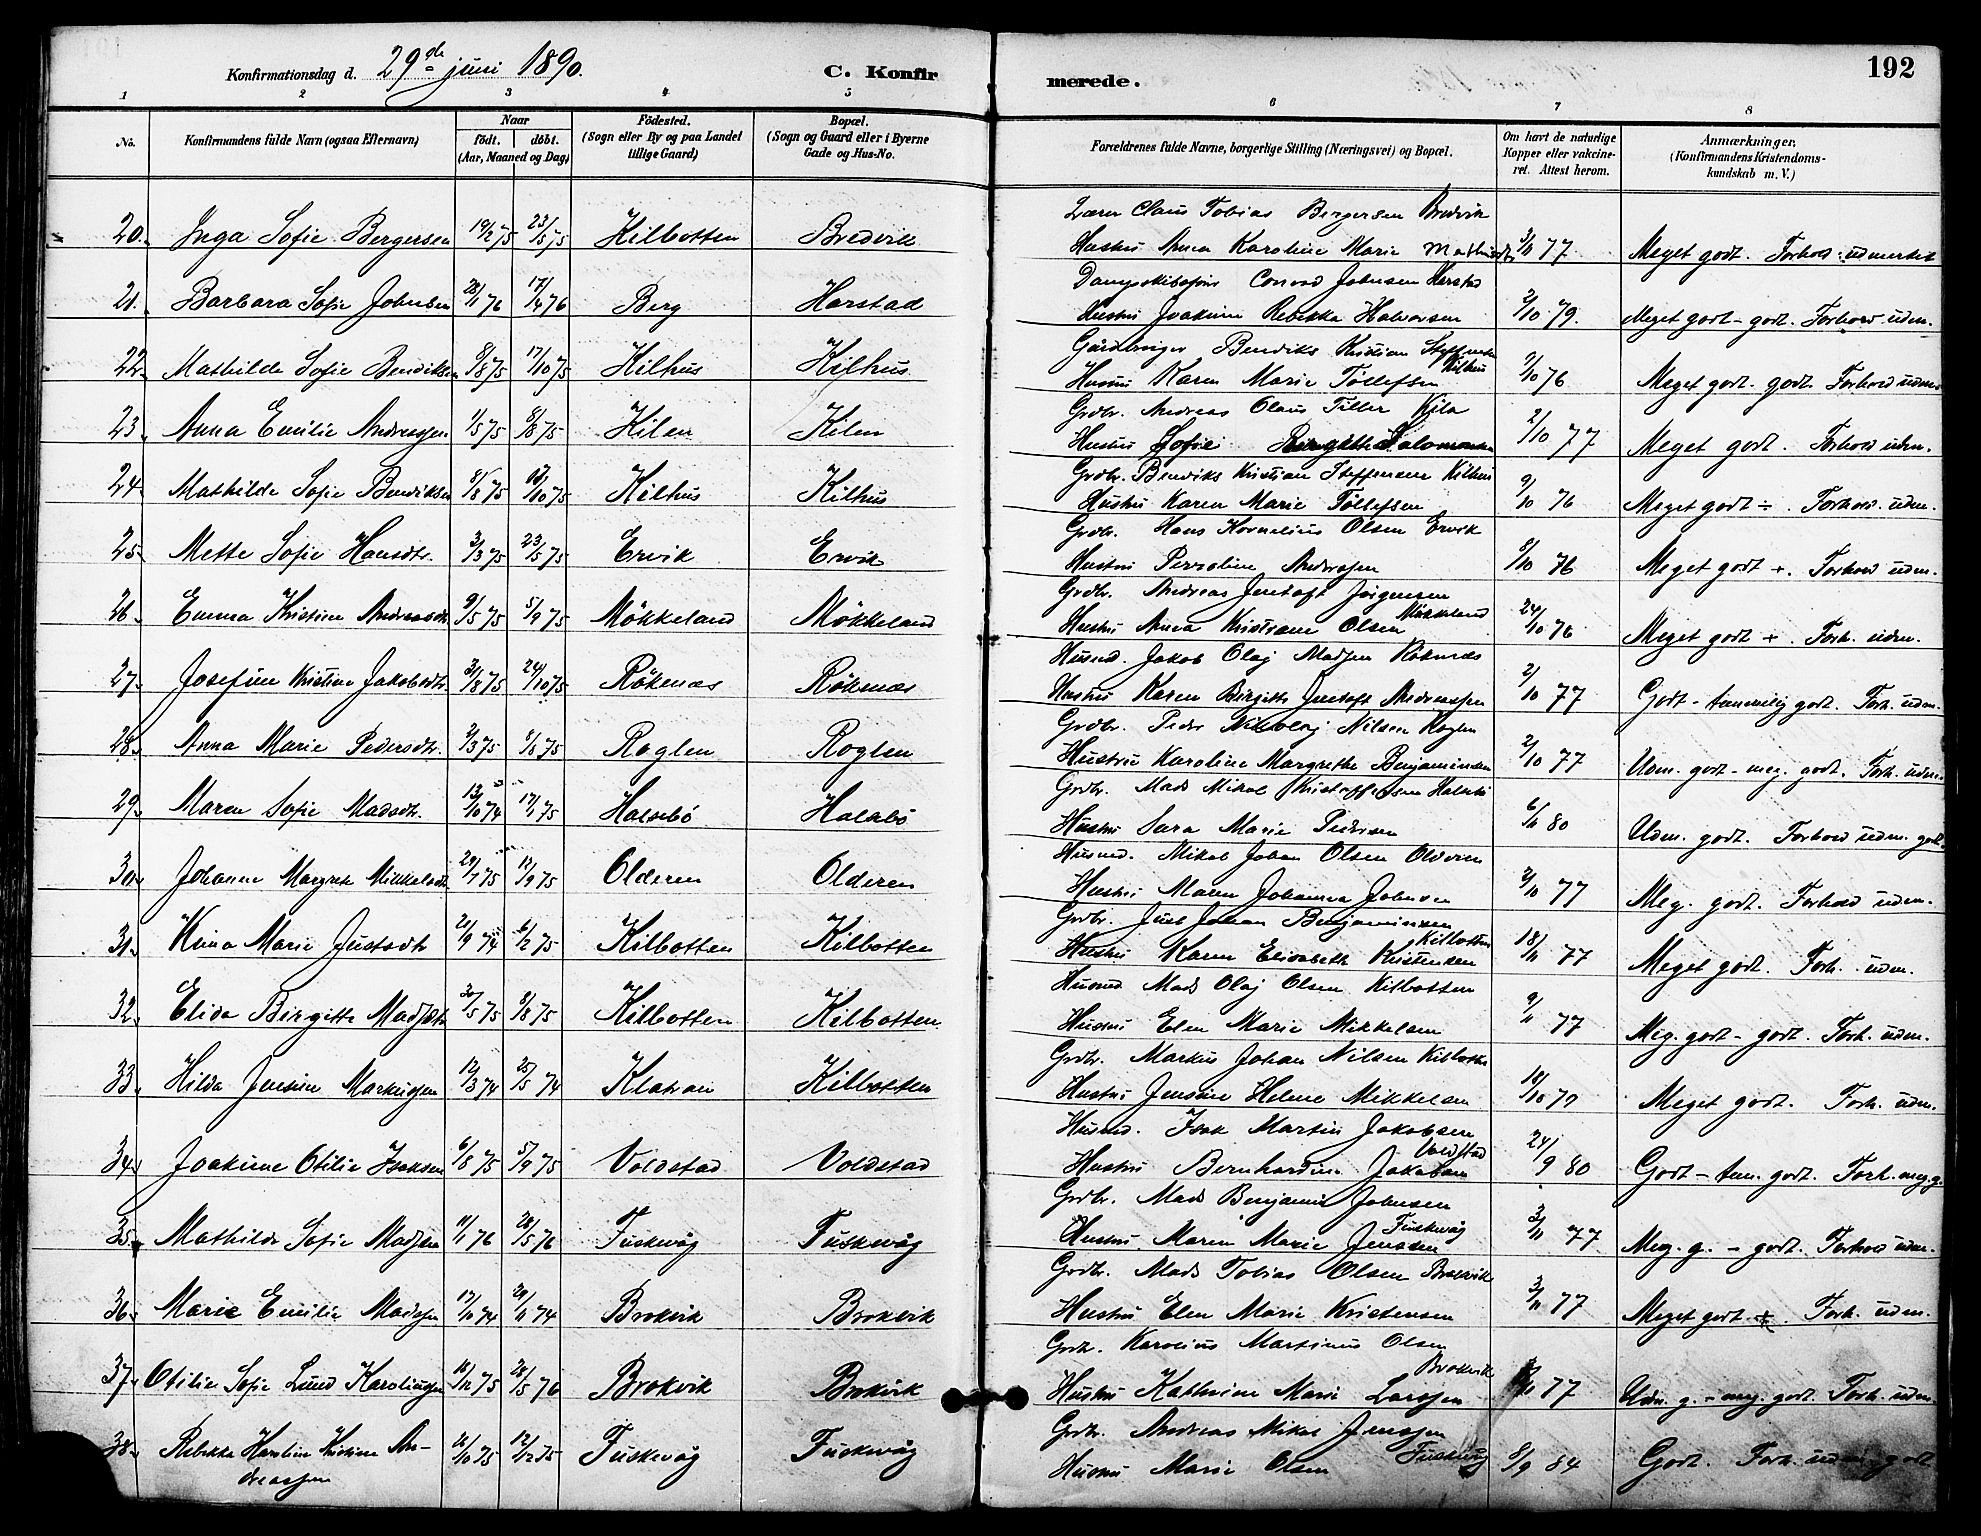 Konfirmationsdag d. 29de juni 1890. C. Konfirmerede. 192
1 2 3 4 5 6 7 8
No. Konfirmandens fulde Navn (ogsaa Efternavn) Naar födt. döbt. (Aar, Maaned og Dag) Födested. (Sogn eller By og paa Landet tillige Gaard) Bopæl. (Sogn og Gaard eller i Byerne Gade og Hus-No. Forældrenes fulde Navne, borgerlige Stilling (Næringsvei) og Bopæl. Om havt de naturlige Kopper eller vakcineret. Attest herom. Anmærkninger. (Konfirmandens Kristendomskundskab m. V.)
Lærer Claus Tobias Bergersen Bredvik
20. Inga Sofie Bergersen 19/2 75 23/5 75 Kilbotten Bredvik Hustru Anna Karoline Marie 3/11 77 Meget godt. Forhold udmerket
Conrad Johnsen Harstad
21. Barbara Sofie Johnsen 28/1 76 17/4 76 Berg Harstad Hustru Joakime Rebekka Halvorsen 2/10 79. Meget godt - godt. Forhold udm.
Gårdbruger Bendiks Kristian Steffensen Kilhus
22. Mathilde Sofie Bendiksen 8/8 75 17/10 75 Kilhus Kilhus Hustru Karen Marie Tollefsen 9/10 76 Meget godt - godt. Forhold udm.
Grdbr. Andreas Olaus Tiller Kila
23. Anna Emilie Andreassen 1/5 75 8/8 75 Kilen Kilen Hustru Sofie Birgitte Salomonsen 2/10 77 Meget godt. Forhold udm.
Grdbr. Bendiks Kristian Steffensen Kilhus
24. Mathilde Sofie Bendiksen 8/8 75 17/10 75 Kilhus Kilhus Hustru Karen Marie Tollefsen 9/10 76 Meget godt ÷. Forhold udm.
Grdbr. Hans Kornelius Olsen Ervik
25. Mette Sofie Hansdtr. 3/3 75 23/5 75 Ervik Ervik Hustru Andersen 8/10 76 Meget godt +. Forhold udm.
Grdbr. Andreas Jentoft Jörgensen Mökkeland
26. Emma Kristine Andreasdtr 9/5 75 5/9 75 Mökkeland Mökkeland Hustru Anna Kristiane Olsen 24/10 76 Meget godt +. Forh. udm.
Husmd. Jakob Olaj Madsen Rökenæs
27. Josefine Kristine Jakobsdtr. 31/8 75 24/10 75 Rökenæs Rökenæs Hustru Karen Birgitte Jentoft Andreassen 2/10 77 Godt - temmelig godt. Forh. udm.
Grdbr. Peder Nikolaj Nilsen Roglen
28. Anna Marie Pedersdtr. 3/3 75 /5 75 Roglen Roglen Hustru Karoline Margrethe Benjaminsen 2/10 77 Udm. godt - meg. godt. Forh. udm.
Grdbr. Mads Mikal Kristoffersen Halsebö
29. Maren Sofie Madsdtr. 13/10 74 17/1 75 Halsebö Halsebö Hustru Sara Marie Pedersen 6/11 80 Udm. godt. Forhold udm. godt.
Husmd. Mikal Johan Olsen Olderen
30. Johanne Margrete Mikkelsdtr 29/7 75 12/9 75 Olderen Olderen Hustru Maren Johanna Johnsen 2/11 77 Meg. godt. Forhold udm.
Grdbr. Just Johan Benjaminsen Kilbotten
31. Marie Justsdtr 21/9 74 6/2 75 Kilbotten Kilbotten Hustru Karen Elisabeth Kristensen 18/11 77 Meget godt. Forh. udm.
Husmd Mads Olaj Olsen Kilbotten
32. Elida Birgitte Madsdtr 30/5 75 8/8 75 Kilbotten Kilbotten Hustru Elen Marie Mikkelsen 9/11 77 Meg. godt - godt. Forh. udm.
Grdbr. Markus Johan Nilsen Kilbotten
33. Hilda Jensine Markussen 12/3 74 25/5 74 Klatran Kilbotten Hustru Jensine Helene Mikkelsen 18/10 77 Meget godt. Forh. udm.
Husmd. Isak Martin Jakobsen Voldstad
34. Joakime Otilie Isaksen 6/8 75 5/9 75 Voldstad Voldstad Hustru Bernhardine Jakobsen 24/9 80 Godt - tem. godt. Forh. meg. g.
Grdbr. Mads Benjamin Johnsen Fuskevåg
35. Mathilde Sofie Madsen 11/1 76 28/5 76 Fuskevåg Fuskevåg Hustru Maren Marie Jenssen 3/11 77 Meg. g. - godt. Forhold udm.
Grdbr. Mads Tobias Olsen Brokvik
36. Marie Emilie Madssen 17/10 74 29/11 74 Brokvik Brokvik Hustru Elen Marie Kristensen 3/11 77 Meget godt +. Forh. udm.
Grdb. Karolius Martinus Olsen Brokvik
37. Otilie Sofie Lund Karoliussen 18/12 75 28/5 76 Brokvik Brokvik Hustru Kathrine Marie Larssen 77 Udm. g. - meg. godt. Forh. udm.
Grdbr. Andreas Mikal Jenssen Fuskevåg
38. Rebekka Kristine Andreassen 21/10 75 12/12 75 Fuskevåg Fuskevåg Hustru Marie Olsen 8/9 84 Godt. Forh. udm. godt